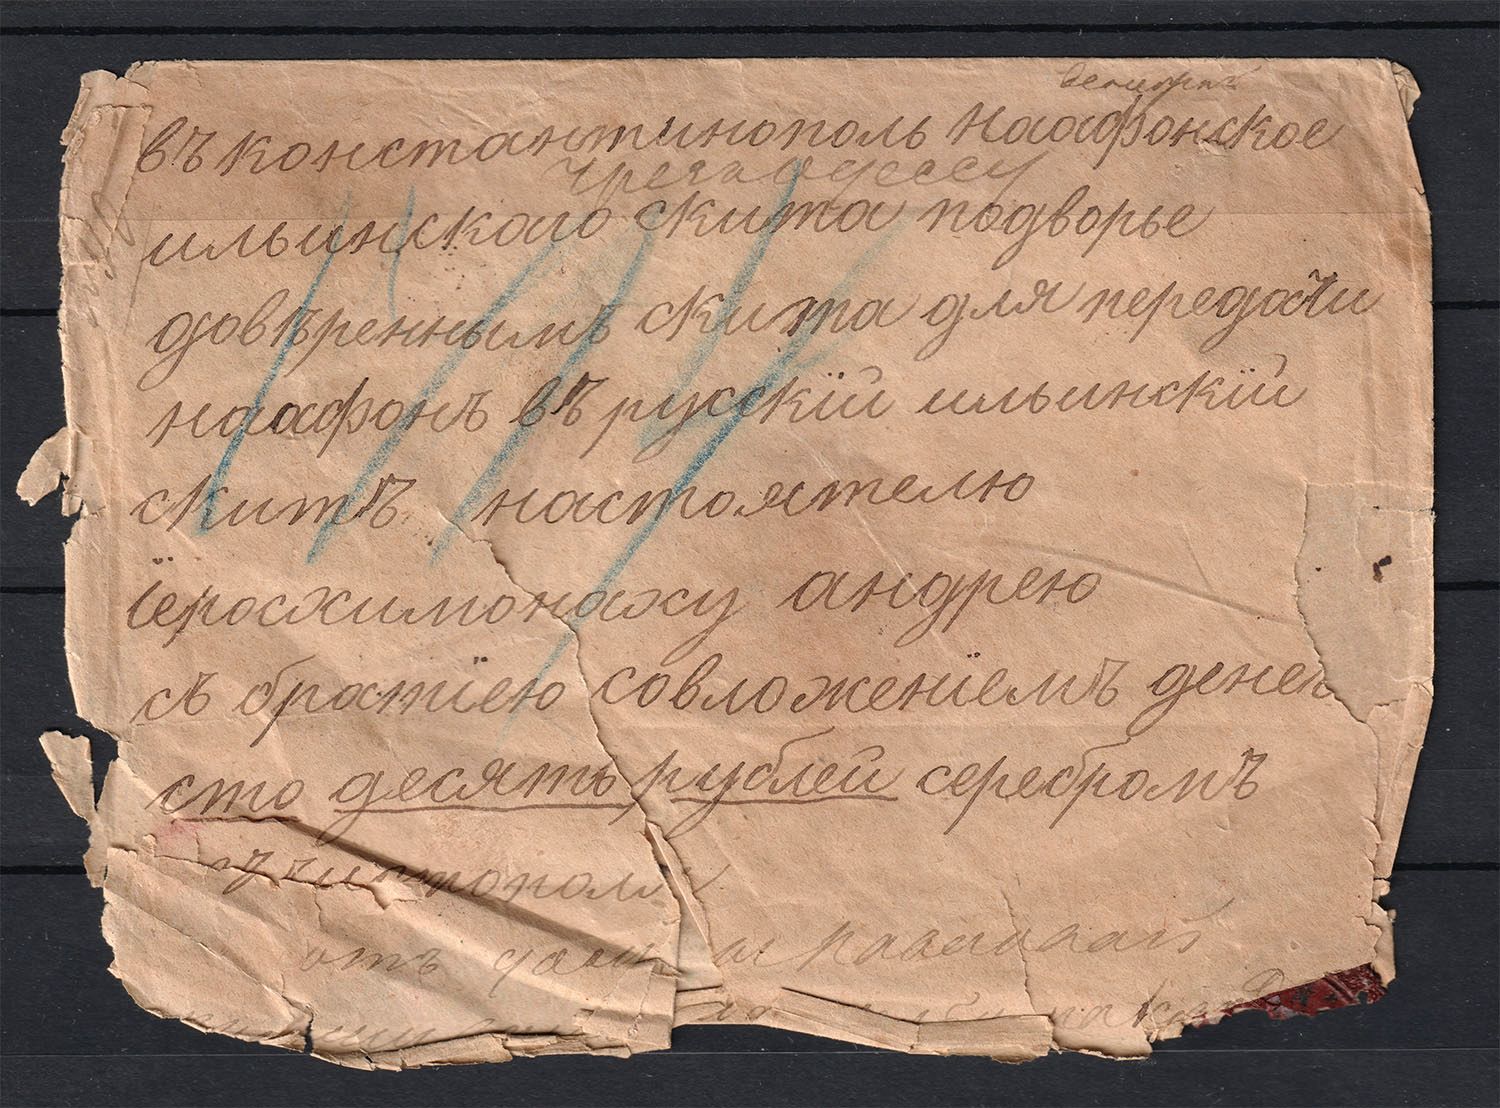 въ константинополь наафонское
чрезъ одессу
ильинского скита подворье
довѣреннымъ скита для передачи
наафонъ въ русскїй ильинскїй
скитъ настоятелю
їеросхимонаху андрею
съ братїею совложенїемъ денег
сто десять рублей серебромъ
отъ